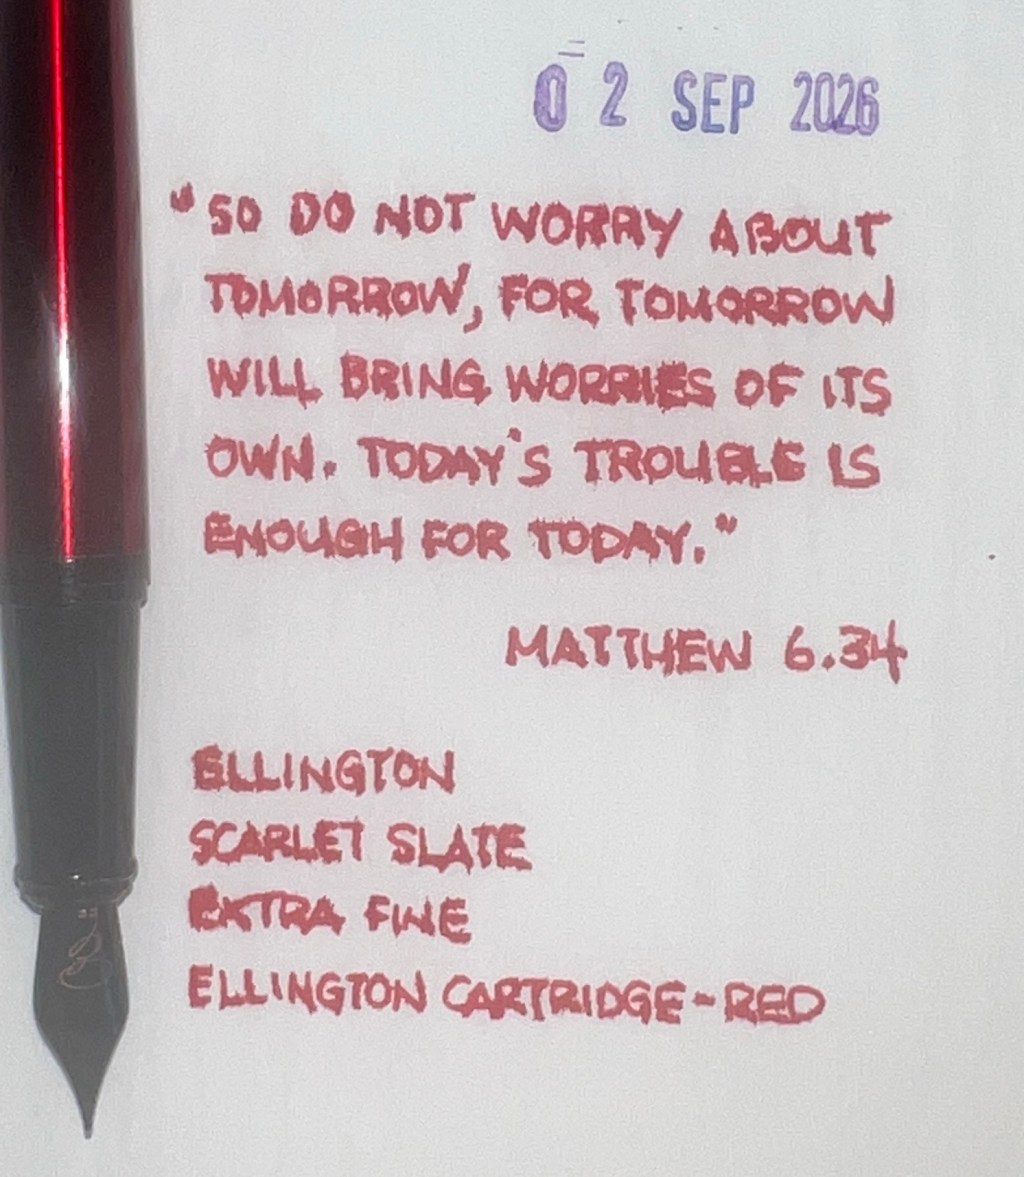 02 SEP 2026
"SO DO NOT WORRY ABOUT
TOMORROW, FOR TOMORROW
WILL BRING WORRIES OF ITS
OWN. TODAY'S TROUBLE IS
ENOUGH FOR TODAY."
MATTHEW 6.34
ELLINGTON
SCARLET SLATE
EXTRA FINE
ELLINGTON CARTRIDGE-RED